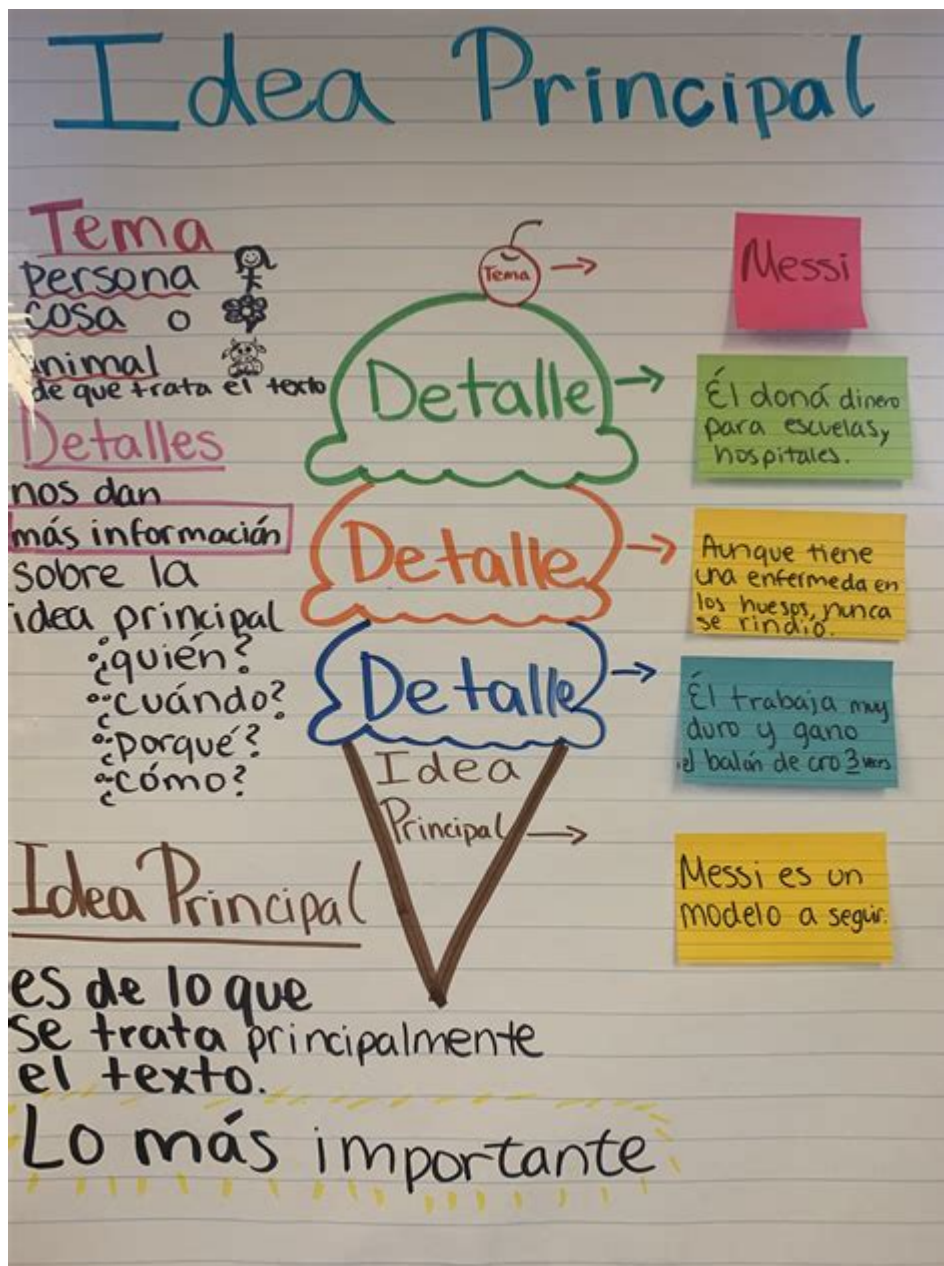 Idea Principal
Tema
persona
cosa o
animal
de que trata el texto
Detalles
nos dan
más información
sobre la
idea principal
¿quién?
¿cuándo?
¿porqué?
¿cómo?
Idea Principal
es de lo que
se trata principalmente
el texto.
Lo más importante
Tema
Detalle
Detalle
Detalle
Idea
Principal
Messi
Él doná dinero
para escuelas y
hospitales.
Aunque tiene
una enfermeda en
los huesos, nunca
se rindió.
Él trabaja muy
duro y gano
el balón de oro 3
Messi es un
modelo a seguir.